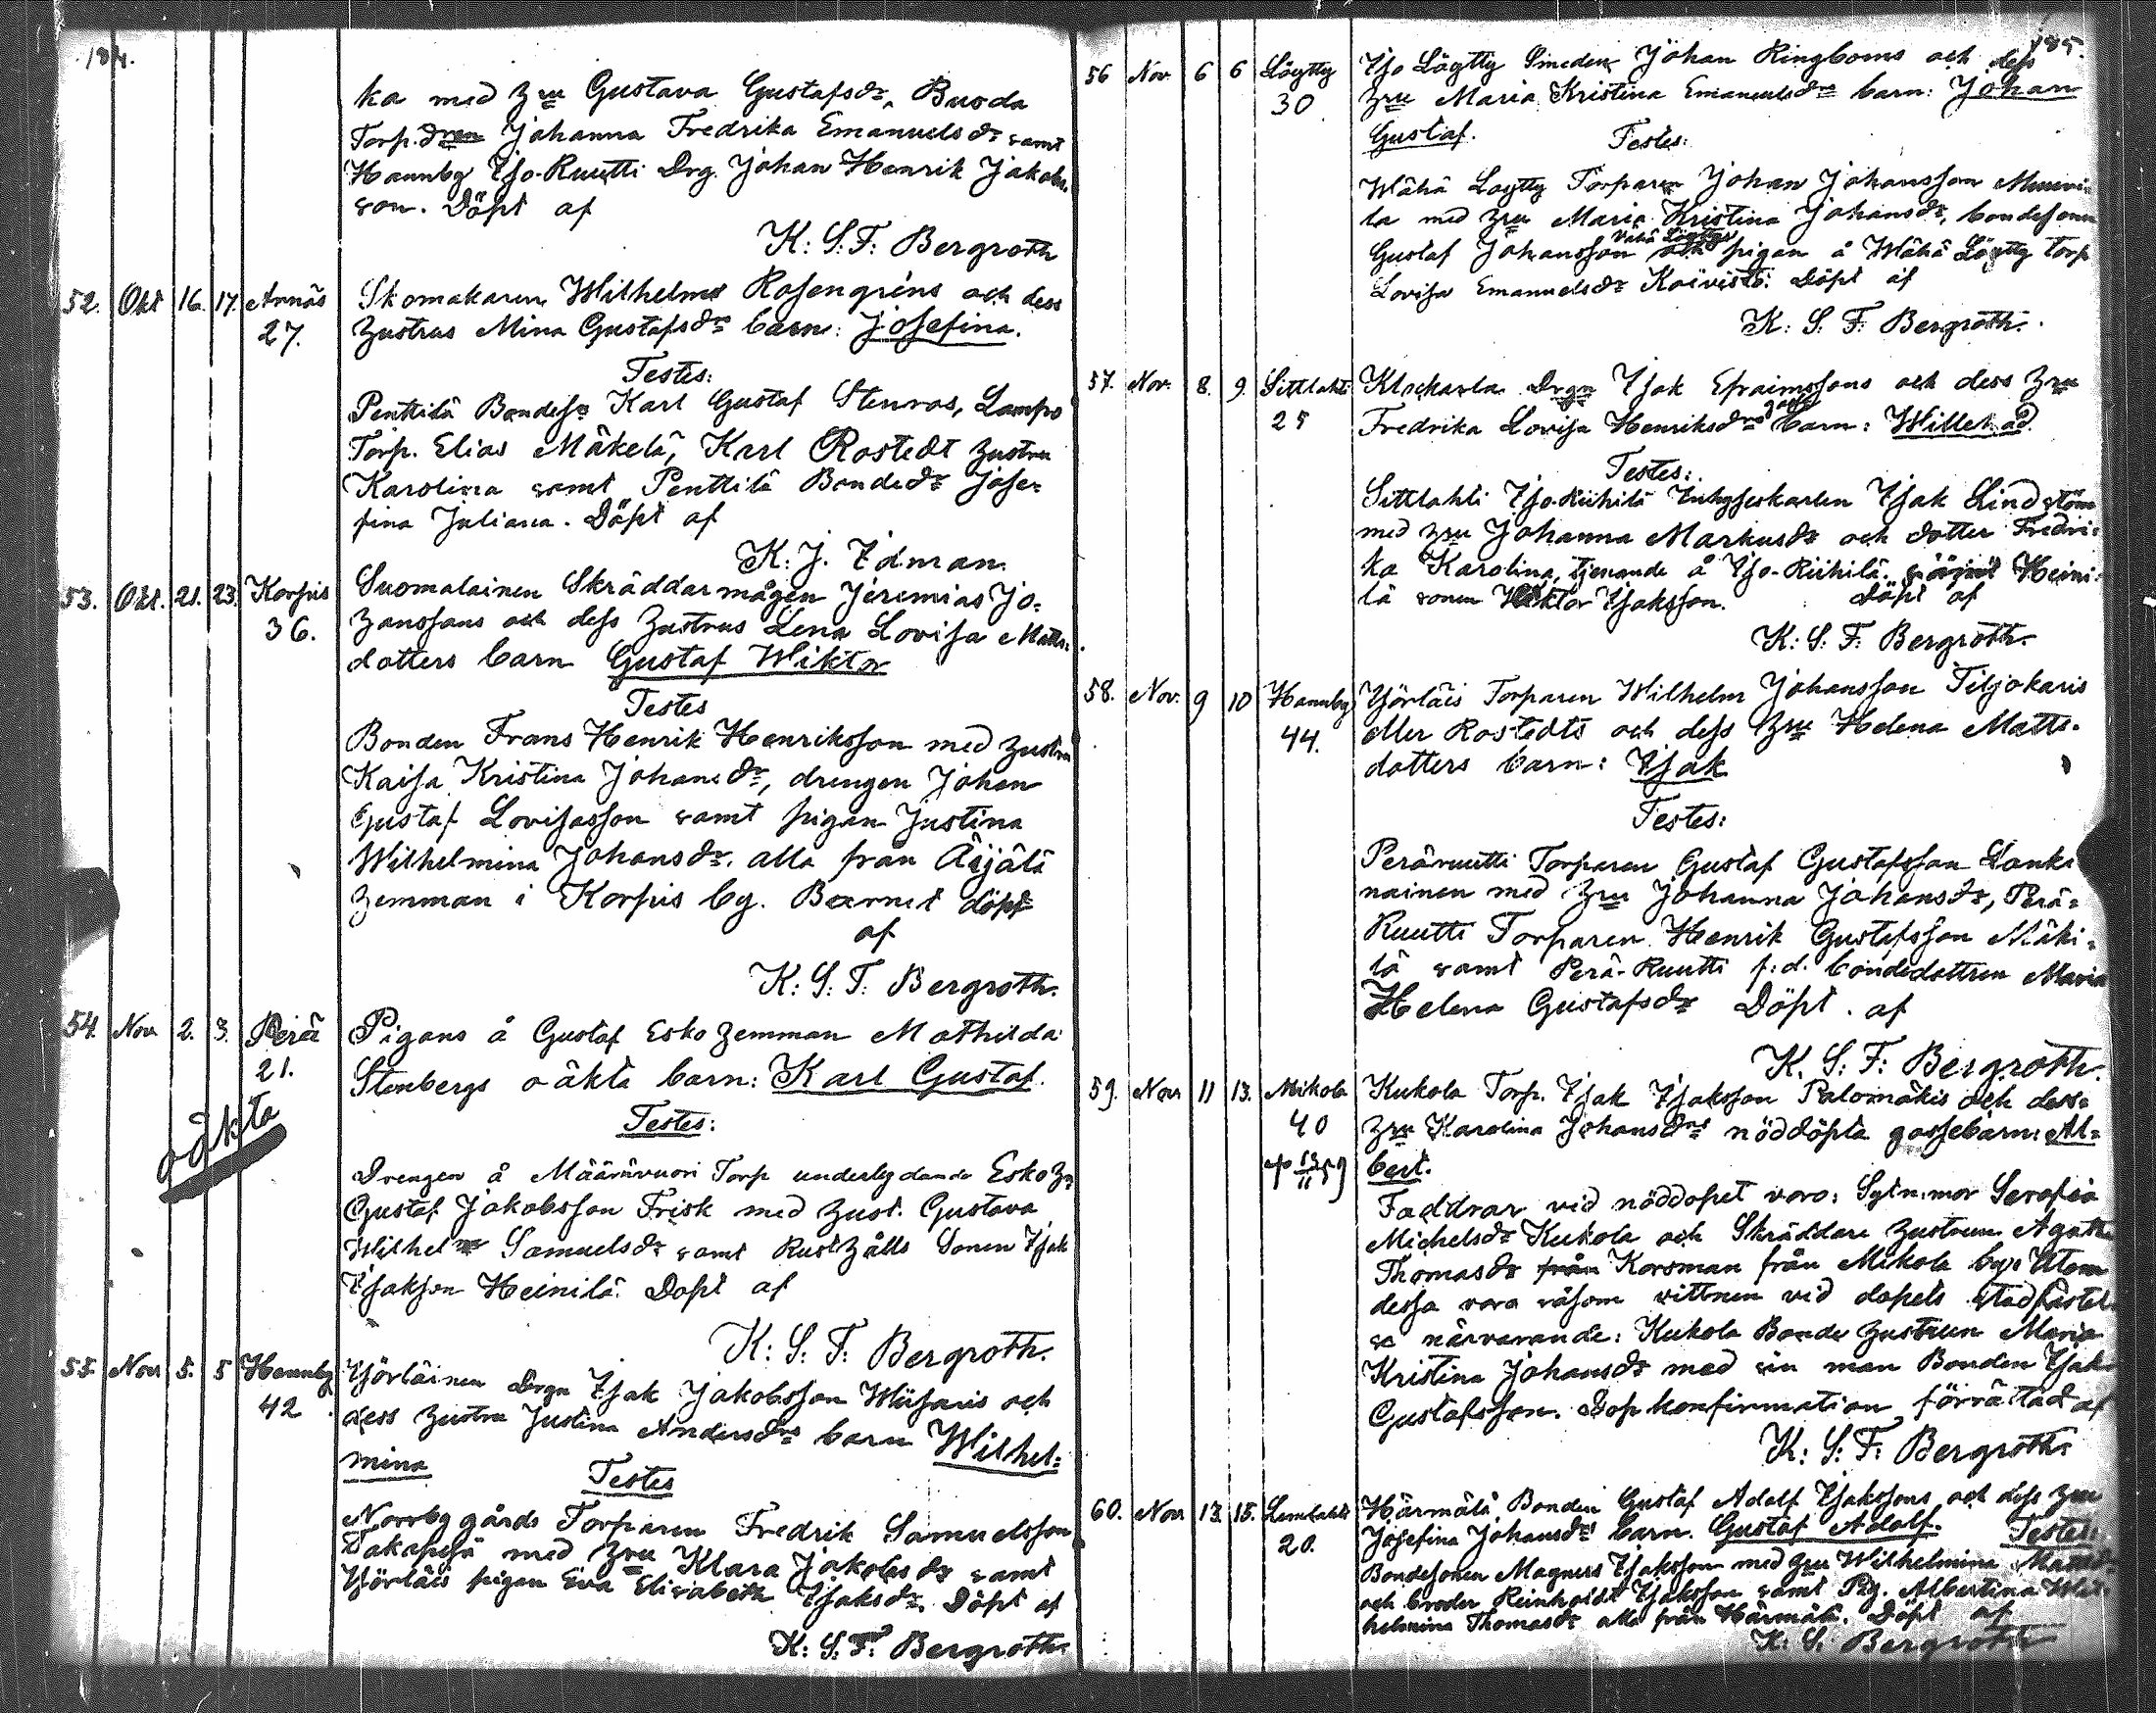 184.
ka med Hru Gustava Gustafsdr, Buoda
Torp.dren Johanna Fredrika Emanuelsdr samt
Hannby Iso-Ruutti Drg. Johan Henrik Jakobs-
son. Döpt af
K: S: F: Bergroth
52. Okt 16. 17. Arnäs Skomakaren Wilhelm Rosengréns och dess
27. Hustrus Mina Gustafsdrs barn: Josefina.
Testes:
Penttilä Bondesn Karl Gustaf Stenros, Lampo
Torp. Elias Mäkelä, Karl Rostedt Hustru
Karolina samt Penttilä Bondedr Jose-
fina Juliana. Döpt af
K. J. Idman.
53. Okt. 21. 23. Korpis Suomalainen Skräddar mågen Jeremias Jo-
36. hanssons och dess Hustrus Lena Lovisa Matts-
dotters barn Gustaf Wiktor
Testes
Bonden Frans Henrik Henriksson med hustru
Kaisa Kristina Johansdr, drengen Johan
Gustaf Lovisasson samt pigan Justina
Wilhelmina Johansdr. alla från Äijälä
hemman i Korpis by. Barnet döpt
af
K: S: F: Bergroth.
54. Nov. 2. 3. Perä Pigans å Gustaf Esko hemman Mathilda
21. Stenbergs oäkta barn: Karl Gustaf.
oäkta
Testes:
Drengen å Määrävuori Torp underlydande Esko Hn
Gustaf Jakobsson Frisk med Hust. Gustava
Wilhelma Samuelsdr samt Rusthålls Sonen Isak
Isaksson Heinilä. Döpt af
K: S: F: Bergroth.
55. Nov. 5. 5 Hannby Yörläinen Drgn Isak Jakobsson Wiisaris och
42. dess Hustru Justina Andersdrs barn Wilhel-
mina
Testes
Norrby gårds Torparen Fredrik Samuelsson
Takapesä med Hru Klara Jakobsdr samt
Yörläis pigan Eva Elisabeth Isaksdr. Döpt af
K: S: F: Bergroth.
185.
56 Nov. 6 6 Löytty Iso Löytty Smeden Johan Ringboms och dess
30 Hru Maria Kristina Emanuelsdrs barn: Johan
Gustaf.
Testes:
Wähä Löytty Torparen Johan Johansson
la med Hru Maria Kristina Johansdr, bondesonen
Vähä Löyttys
Gustaf Johansson och pigan å Wähä Löytty torp
Lovisa Emanuelsdr Koivisto. Döpt af
K: S: F: Bergroth.
57. Nov. 8. 9. Sittlahti Klockarla Drgn Isak Efraimssons och dess Hru
25 Fredrika Lovisa Henriksdrs barn: Willehad.
Testes:
Sittlahti Iso-Riihilä Inhyseskarlen Isak Lindström
med Hru Johanna Markusdr och dotter Fredri-
ka Karolina, tjenande å Iso-Riihilä Heini-
lä sonen Wiktor Isaksson. Döpt af
K: S: F: Bergroth.
58. Nov. 9 10 Hannby Yörläis Torparen Wilhelm Johansson Tiljokaris
44. eller Rostedts och dess Hru Helena Matts-
dotters barn: Isak
Testes:
Peräruutti Torparen Gustaf Gustafsson
nainen med Hru Johanna Johansdr, Perä-
Ruutti Torparen Henrik Gustafsson Mäki-
lä samt Perä-Ruutti f:d. bondedottren Maria
Helena Gustafsdr Döpt af
K. S: F: Bergroth.
59. Nov 11 13. Mikola Kukola Torp. Isak Isaksson Palomäkis och dess
40 Hru Karolina Johansdrs nöddöpta gossebarn: Al-
bert.
Faddrar vid nöddopet voro: Sytn.mor Serafia
Michelsdr Kukola och Skräddare Hustrun Agatha
Thomasdr från Korsman från Mikola by. Utom
dessa voro såsom vittnen vid dopets stadfästel-
se närvarande: Kukola Bonde Hustrun Maria
Kristina Johansdr med sin man Bonden Isak
Gustafsson. Dopkonfirmation förrättad af
K: S: F: Bergroth.
60. Nov 13. 15. Lemlahti Härmälä Bonden Gustaf Adolf Isakssons och dess Hru
20. Josefina Johansdrs barn. Gustaf Adolf. Testes:
Bondesonen Magnus Isaksson med Hru Wilhelmina Mattsdr
och broder Reinholdt Isaksson samt Pig. Albertina Wil-
helmina Thomasdr alla från Härmälä. Döpt af
K: S: Bergroth